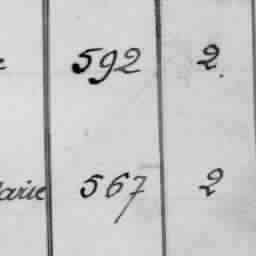 592 2.
567 2